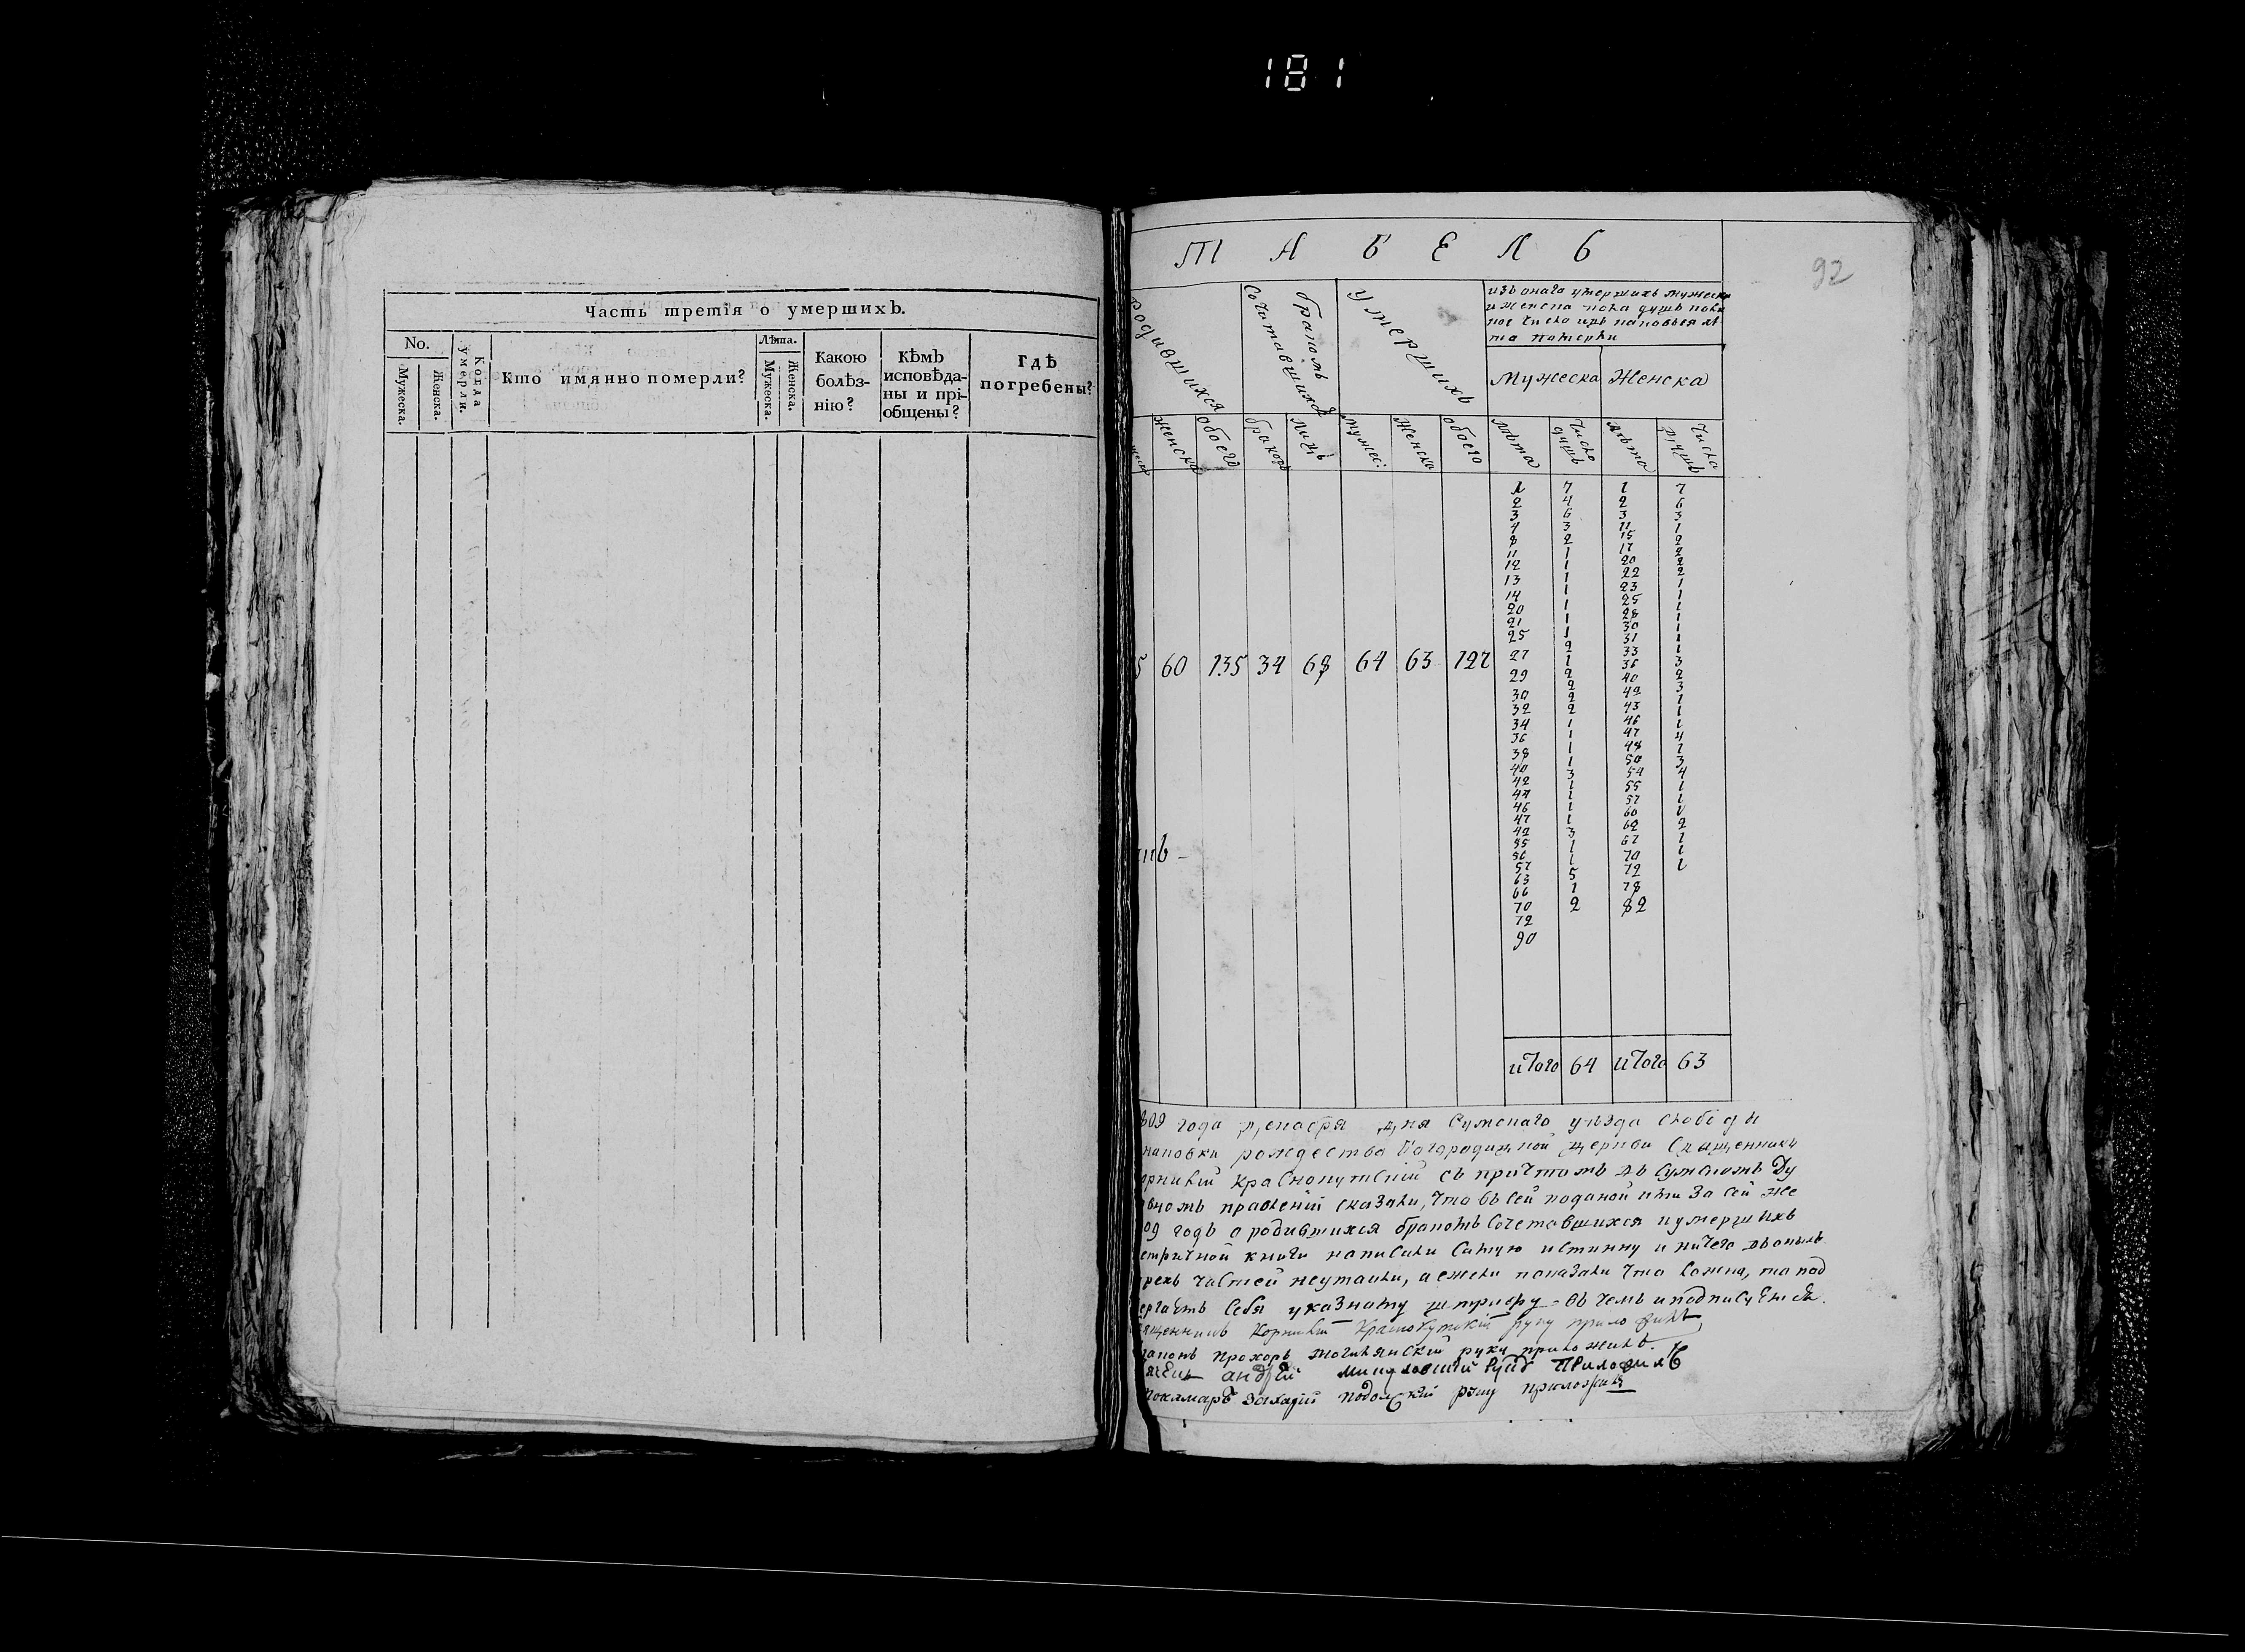 181
92
Часть третія о умершихъ.
No.
Мужеска.
Женска.
Когда умерли.
Кто имянно померли?
Лѣта.
Мужеска.
Женска.
Какою болѣз-
нію?
Кѣмъ
исповѣда-
ны и прі-
общены?
Гдѣ
погребены?
Т А Б Е Л Ь
родившихся
бракомъ
сочетавшихся
умершихъ
изъ онаго умершихъ мужеска
и женска пола душъ
Мужеска Женска
женска
обоего
бракоѳ
лицъ
мужес:
женска
обоего
лѣта
число душъ
лѣта
число душъ
5 60 135 34 68 64 63 127
1 7 1 7
2 4 2 6
3 6 3 3
4 3 11 1
8 2 15 2
11 1 17 2
12 1 20 2
13 1 22 1
14 1 23 1
20 1 25 1
21 1 28 1
25 1 30 1
27 2 31 1
29 1 33 3
30 2 36 2
32 2 40 3
34 2 42 1
36 2 43 1
38 1 46 1
40 1 47 4
42 1 48 1
44 1 50 3
46 3 54 4
47 1 55 1
42 1 57 1
55 1 60 1
56 3 62 2
57 1 67 1
63 1 70 1
66 5 72 1
70 1 78
72 2 82
90
итого 64 итого 63
809 года декабря дня Сумскаго уѣзда слободы
рождества Богородичной церкви священникъ
Краснокутскій съ причтомъ въ сумскомъ Ду
вномъ правленіи сказали, что въ сей поданой за сей же
09 годъ о родившихся бракомъ сочетавшихся и умершихъ
етричной книги написали самую истинну и ничего
рехъ частей неутаили, а ежели показали что ложна, то под
себя указному штрафу въ чемъ и подписуемся.
Корнилій Краснокутскій руку приложилъ
Прохоръ руку приложилъ.
андрей
руку приложилъ